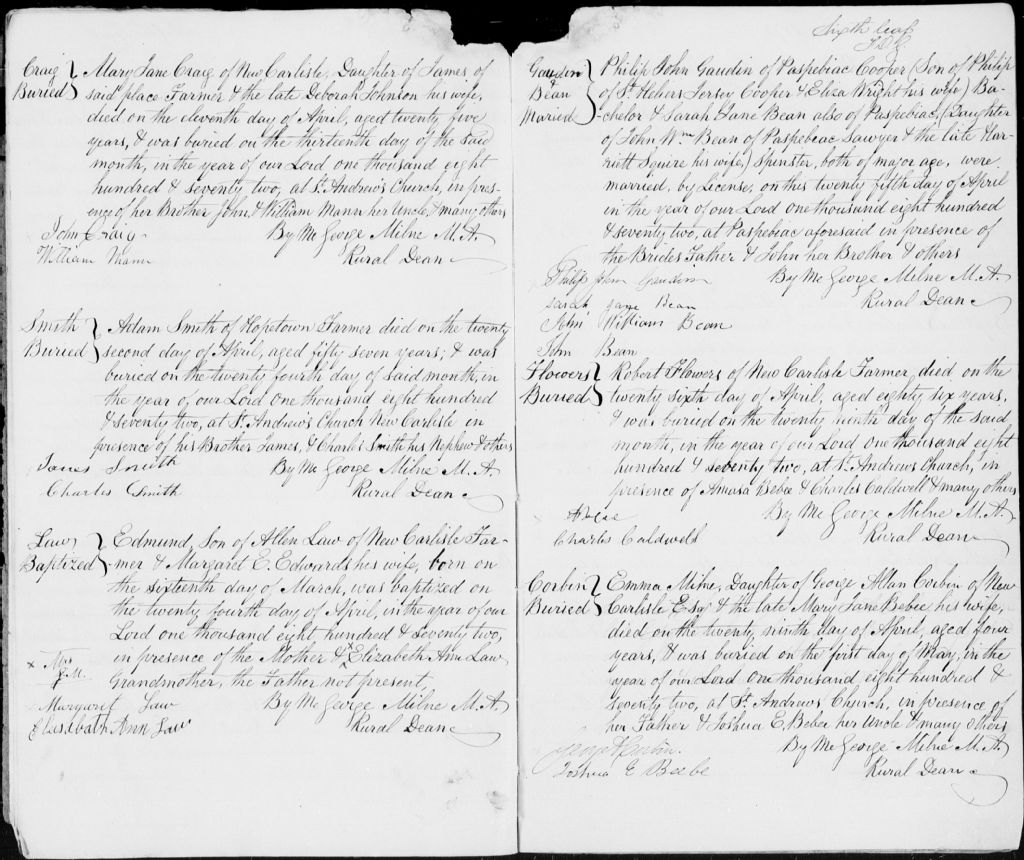 Craig Buried } Mary Jane Craig of New Carlisle, Daughter of James of
said place Farmer & the late Deborah Johnson his wife,
died on the eleventh day of April, aged twenty five
years, & was buried on the thirteenth day of the said
month, in the year of our Lord one thousand eight
hundred & seventy two, at St. Andrew's Church, in pres-
ence of her Brother John & William Mann her Uncle, & many others
John Craig By Me George Milne M. A.
William Mann Rural Dean
Smith Buried } Adam Smith of Hopetown Farmer died on the twenty
second day of April, aged fifty seven years; & was
buried on the twenty fourth day of said month, in
the year of our Lord one thousand eight hundred
& seventy two, at St. Andrew's Church New Carlisle in
presence of his Brother James, & Charles Smith his Nephew & others
James Smith By Me George Milne M. A.
Charles Smith Rural Dean
Law Baptized } Edmund, Son of Allen Law of New Carlisle Far-
mer & Margaret E. Edwards his wife, born on
the sixteenth day of March, was baptized on
the twenty fourth day of April, in the year of our
Lord one thousand eight hundred & seventy two,
in presence of the Mother & Elizabeth Ann Law
Grandmother, the Father not present.
Margaret Law By Me George Milne M. A.
Elisabath Ann Law Rural Dean
Sixth leaf
Gaudin Bean Married } Philip John Gaudin of Paspebiac Cooper (Son of Philip
of St. Heliers Jersey Cooper & Eliza Wright his wife) Ba-
chelor & Sarah Jane Bean also of Paspebiac, (Daughter
of John Wm. Bean of Paspebiac Sawyer & the late Har-
riett Squire his wife,) Spinster, both of major age, were
married, by License, on this twenty fifth day of April
in the year of our Lord one thousand eight hundred
& seventy two, at Paspebiac aforesaid in presence of
the Brides Father & John her Brother & others
Philip John Gaudin By Me George Milne M. A.
Sarah Jane Bean Rural Dean
John William Bean
John Bean
Flowers Buried } Robert Flowers of New Carlisle Farmer, died on the
twenty sixth day of April, aged eighty six years,
& was buried on the twenty ninth day of the said
month, in the year of our Lord one thousand eight
hundred & seventy two, at St. Andrews Church, in
presence of Amasa Bebee & Charles Caldwell & many others
By Me George Milne M. A.
Charles Caldwell Rural Dean
Corbin Buried } Emma Milne, Daughter of George Allan Corbin of New
Carlisle Esqr & the late Mary Jane Bebee his wife,
died on the twenty ninth day of April, aged four
years, & was buried on the first day of May, in the
year of our Lord one thousand eight hundred &
seventy two, at St. Andrews Church, in presence of
her Father & Joshua E. Bebee her Uncle & many others
George A Corbin By Me George Milne M. A.
Joshua E Beebe Rural Dean